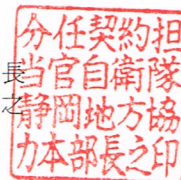 分任契約担
当官自衛隊
静岡地方協
力本部長之印
長
之